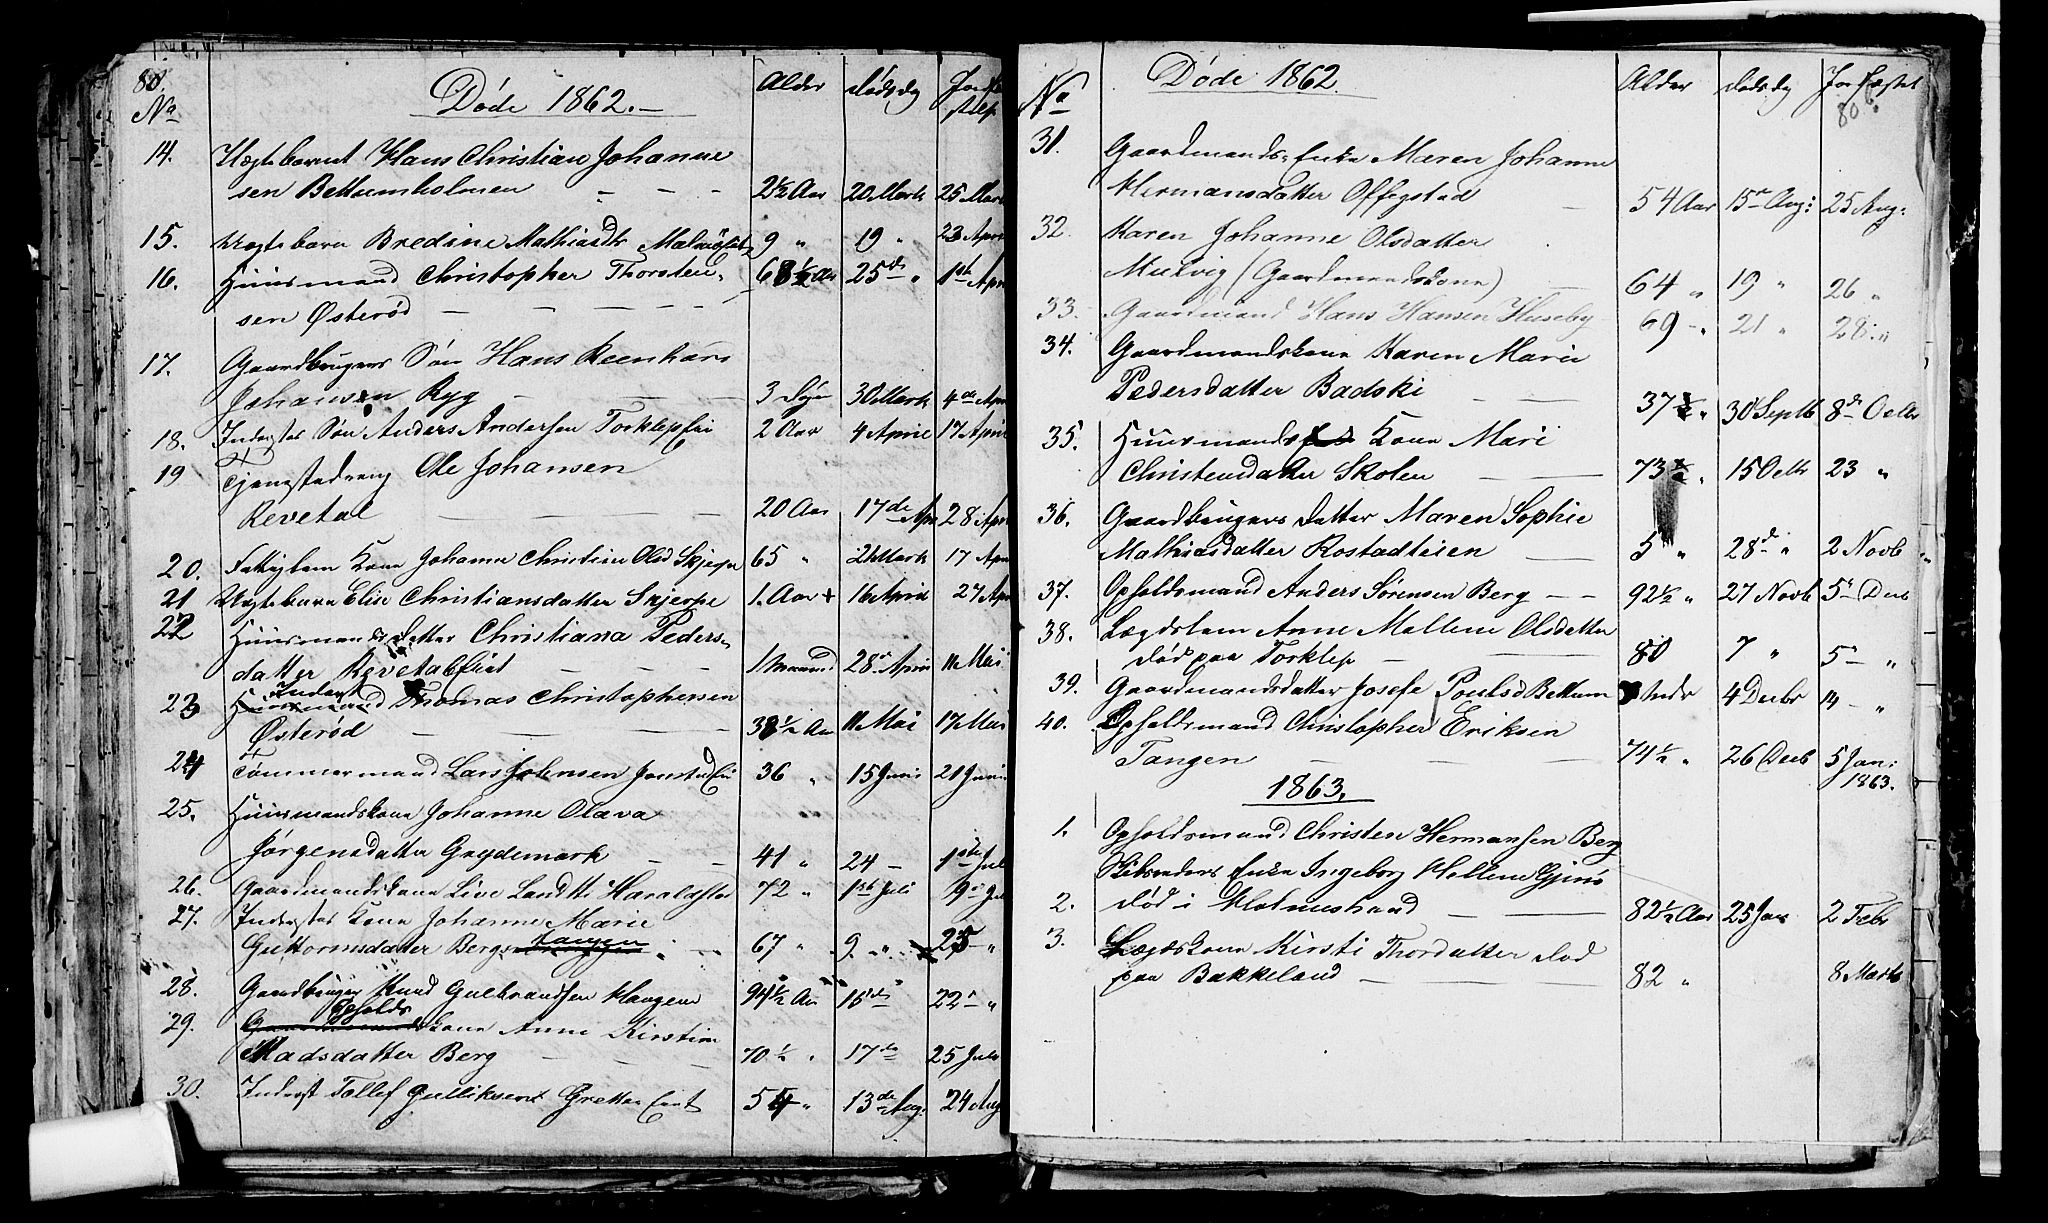 80.
No
Døde 1862.
Alder
dødsdag
14. Lægsbarnet Hans Christian Johanne
sen Bettumholmen - - - 2½ Aar 20 Marts 25 Mar
15. Lægsbarn Bredine Mathiasdtr 9 " 19 " 23 Apri
16. Huusmand Christopher Thorsten- 68½ Aar 25de " 1ste Apri
sen Østerød - - - -
17. Gaardbrugers Søn Hans Reenhart
Johansen Ryg - - 3 Dage 30 Marts 4de Apr
18. Inderstes Søn Anders Andersen Torklepeie 2 Aar 4 April 17 April
19 Tjenestedreng Ole Johansen
Revetal - - - 20 Aar 17de Apr 28 Apr
20. Fattiglem Kone Johanne Christine Olsd Skjerpe 65 " 21 Marts 17 Apr
21 Lægsbarn Elise Christiansdatter Skjerpe 1. Aar + 16 April 27 Apr
22 Huusmands Datter Christiana Peders-
datter Revetal - - 1 Maaned 28de April 11 Mai
23 Inderst Thomas Christophersen
Østerød - - - - 38½ Aar 11 Mai 17 Mai
24 Tømmermand Lars Jolensen 36 " 15 Juni 21 Juni
25. Huusmandskone Johanne Olava
Jørgensdatter Grydemark - - 41 " 24 - 1ste Jul
26. Gaardmandskone Live 72 " 1ste Juli 9de Jul
27. Inderstes Kone Johanne Marie
Guttormsdatter Berg - 67 " 9 " 25 "
28. Gaardbruger Knud Gulbrandsen Haugene 94½ Aar 15de " 22de "
29. Opholdskone Anne Kirstine
Madsdatter Berg - - 70½ " 17de 25 Juli
30. Inderst Tollef Gulliksen 54 " 13de Aug. 24 Aug
No
Døde 1862
Alder
dødsdag
80 b.
31. Gaardmands Enke Maren Johanne
Hermansdatter Offigstad - 54 Aar 15de Aug: 25 Aug:
32. Karen Johanne Olsdatter
Mulvig (Gaardmandskone) - 64 " 19 " 26 "
33. Gaardmand Hans Hansen Huseby 69 " 21 " 28 "
34. Gaardmandskone Karen Marie
Pedersdatter Badski - - 37½ " 30 Septb 8de Octbr
35. Huusmands Kone Mari
Christensdatter Skolen - - 73½ " 15 Octb 23 "
36. Gaardbrugers Datter Maren Sophie
Mathiasdatter Rostadteien - 5 " 28de " 2 Novb
37. Opholdsmand Anders Sørensen Berg - - 92½ " 27 Novb 5te Decb
38. Lægdslem Anne Mallene Olsdatter
død paa Torklep - - 80 7 " 5te "
39. Gaardmandsdatter Josefe Poulsd Bettum 4 Decbr 14 - "
40. Opholdsmand Christopher Eriksen
Tangen - - - 74½ " 26 Decb 5 Jan:
1863.
1863.
1. Opholdsmand Christen Hermansen Berg
Enke Ingeborg Hellene
2. død i Holmestrand - - 82½ Aar 25 Jan 2 Febr
3. Lægdskone Kirsti Thordatter død
paa Bakkeland - - - 82 " 8 Marts